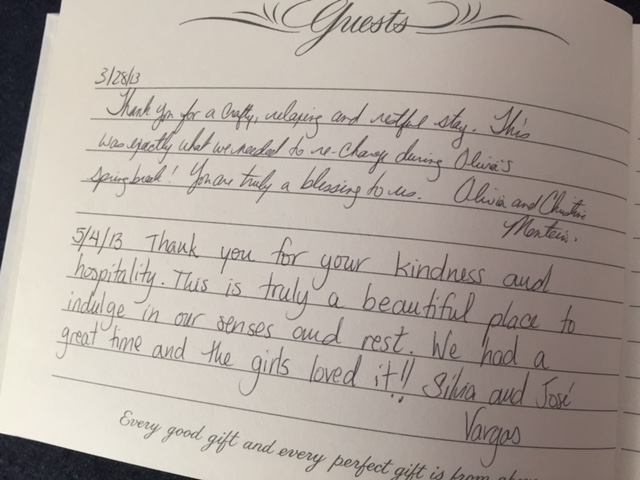 Guests
3/28/13
Thank you for a crafty, relaxing and restful stay. This
was exactly what we needed to re-charge during Olivia's
spring break! You are truly a blessing to us. Olivia and Christine
5/4/13 Thank you for your kindness and
hospitality. This is truly a beautiful place to
indulge in our senses and rest. We had a
great time and the girls loved it!! Silvia and José
Vargas
Every good gift and every perfect gift is from